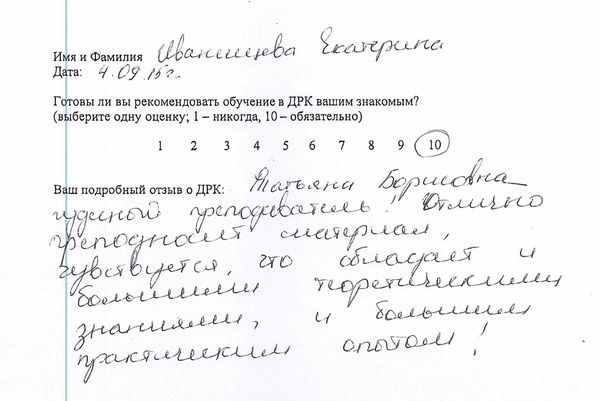 Имя и Фамилия Иванищева Екатерина
Дата: 4.09.15г.
Готовы ли вы рекомендовать обучение в ДРК вашим знакомым?
(выберите одну оценку; 1 – никогда, 10 – обязательно)
1 2 3 4 5 6 7 8 9 10
Ваш подробный отзыв о ДРК: Татьяна Борисовна
чудесный преподаватель! Отлично
преподносит материал,
чувствуется, что обладает и
большими теоретическими
знаниями, и большим
практическим опытом!